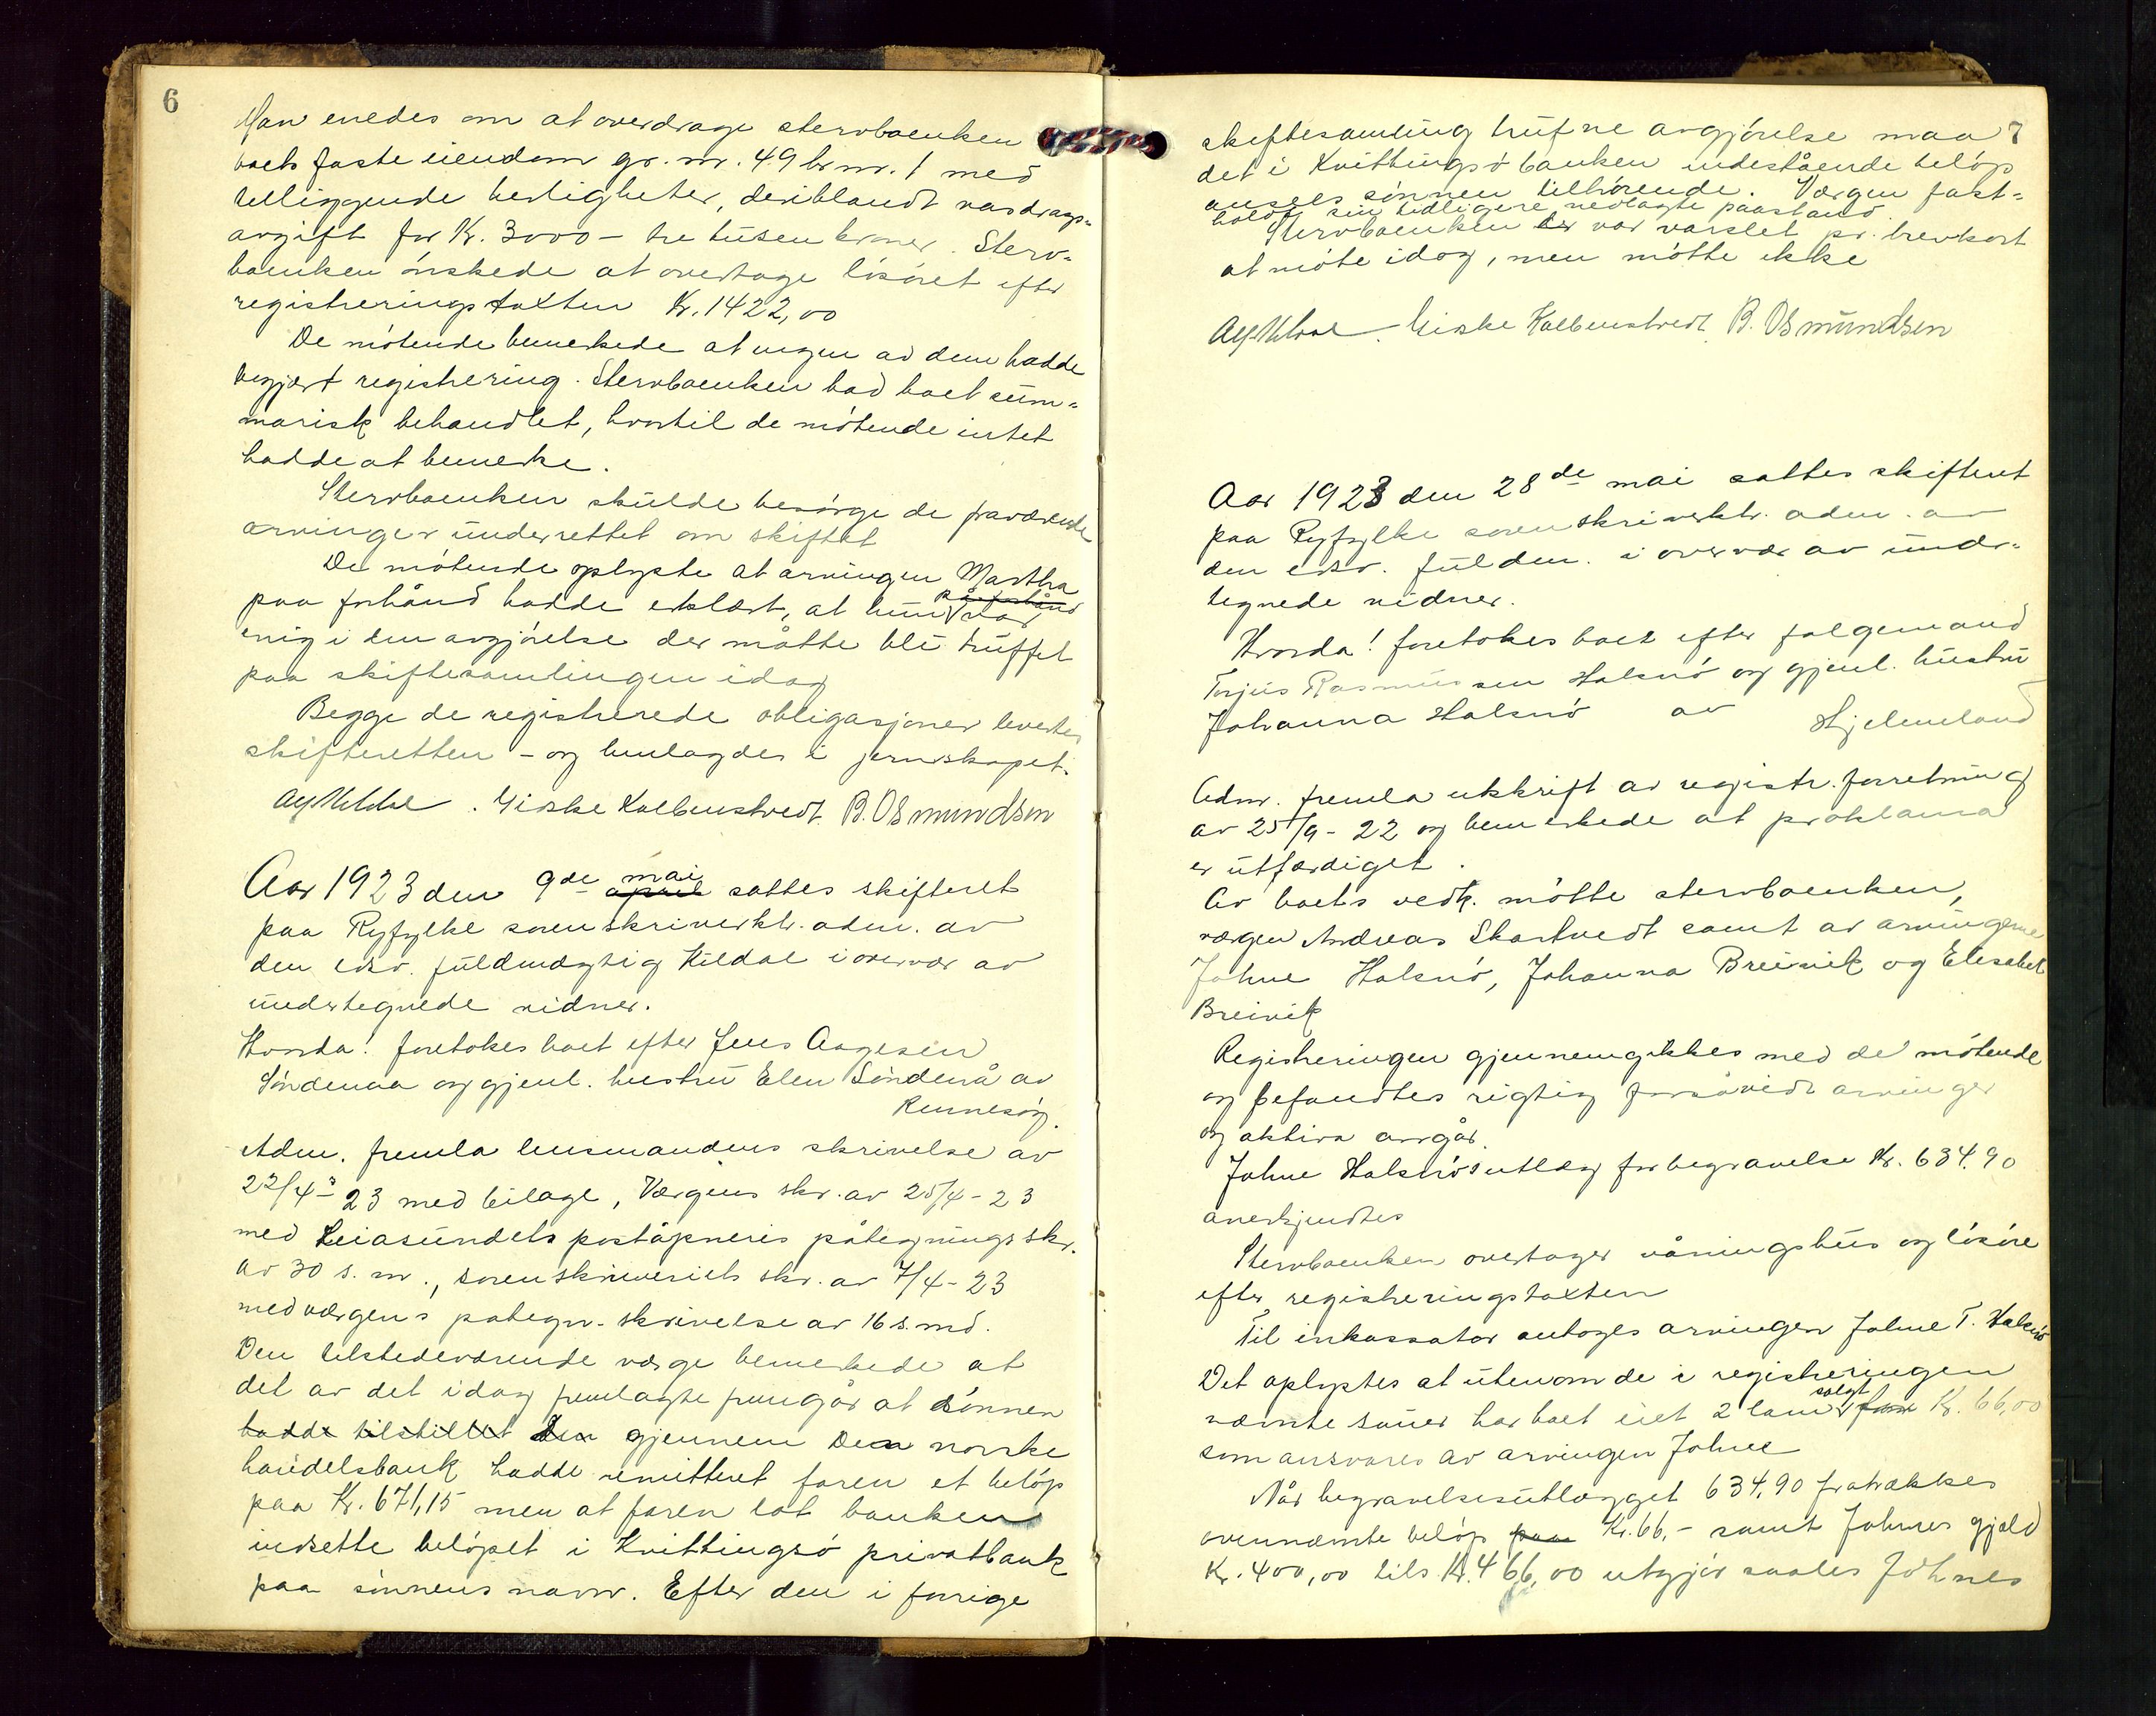 6
Man enedes om at overdrage stervboenken
boets faste eiendom gr. nr. 49 br nr. 1 med
tilliggende herligheter, deriblandt vasdrags-
avgift for Kr. 3000 – tre tusen kroner. Sterv-
boenken ønskede at overtage løsøret efter
registreringstaxten Kr. 1422,00
De møtende bemerkede at ingen av dem hadde
begjært registrering. Stervboenken bad boet sum-
marisk behandlet, hvortil de møtende intet
hadde at bemerke.
Stervboenken skulde besørge de fraværende
arvinger underrettet om skiftet
De møtende oplyste at arvingen Martha
paa forhånd hadde erklært, at hun var
enig i den avgjørelse der måtte bli truffet
paa skiftesamlingen idag
Begge de registrerede obligasjoner levertes
skifteretten – og henlagdes i jernskapet.
Giske Kolbenstvedt. B. Osmundsen
Aar 1923 den 9de mai april sattes skifteret
paa Ryfylke sorenskriverktr. adm. av
den edsv. fuldmægtig Kildal i overvær av
undertegnede vidner.
Hvorda! foretokes boet efter Jens Aagesen
Søndenaa og gjenl. hustru Elen Søndenå av
Rennesøy.
Adm. fremla lensmandens skrivelse av
22/4 – 23 med bilage, Værgens skr. av 25/4 – 23
med Leiasundets poståpneris påtegningsskr.
av 30 s. m., sorenskriveriets skr. av 7/4 – 23
med værgens påtegn. skrivelse av 16 s. md.
Den tilstedeværende værge bemerkede at
det av det idag fremlagte fremgår at sønnen
hadde tilstillet den gjennem Den norske
handelsbank hadde remitteret faren et beløp
paa Kr. 671,15 men at faren lot banken
indsette beløpet i Kvittingsø privatbank
paa sønnens navn. Efter den i forrige
7
skiftesamling trufne avgjørelse maa
det i Kvittingsø banken indestående beløp
ansees sønnen tilhørende. Værgen fast-
holdt sin tidligere nedlagte paastand.
Stervboenken er var varslet pr. brevkort
at møte idag, men møtte ikke
Giske Kolbenstvedt. B. Osmundsen
Aar 1923 den 28de mai sattes skifteret
paa Ryfylke sorenskriverktr. adm. av
den edsv. fuldm. i overvær av under-
tegnede vidner.
Hvorda! foretokes boet efter følgemand
Torjus Rasmussen Halsnø og gjenl. hustru
Johanna Halsnø av Hjelmeland
Adm. fremla utskrift av registr. forretning
av 25/9 – 22 og bemerkede at proklama
er utfærdiget.
Av boets vedk. møtte stervboenken,
værgen Andreas Skartvedt samt av arvingerne
Johne Halsnø, Johanna Breivik og Elisabet
Breivik
Registreringen gjennemgikkes med de møtende
og befandtes rigtig forsåvidt arvinger
og aktiva angår.
Johne Halsnøs utlæg for begravelse Kr. 634,90
anerkjendtes
Stervboenken overtager våningshus og løsøre
efter registreringstaxten
Til inkassator antoges arvingen Johne T. Halsnø
Det oplystes at utenom de i registreringen
nævnte sauer har boet eiet 2 lam solgt for Kr. 66,00
som ansvares av arvingen Johne
Når begravelsesutlægget 634,90 fratrækkes
ovennævnte beløp paa Kr. 66,– samt Johnes gjæld
Kr. 400,00 tils. Kr. 466,00 utgjør saales Johnes